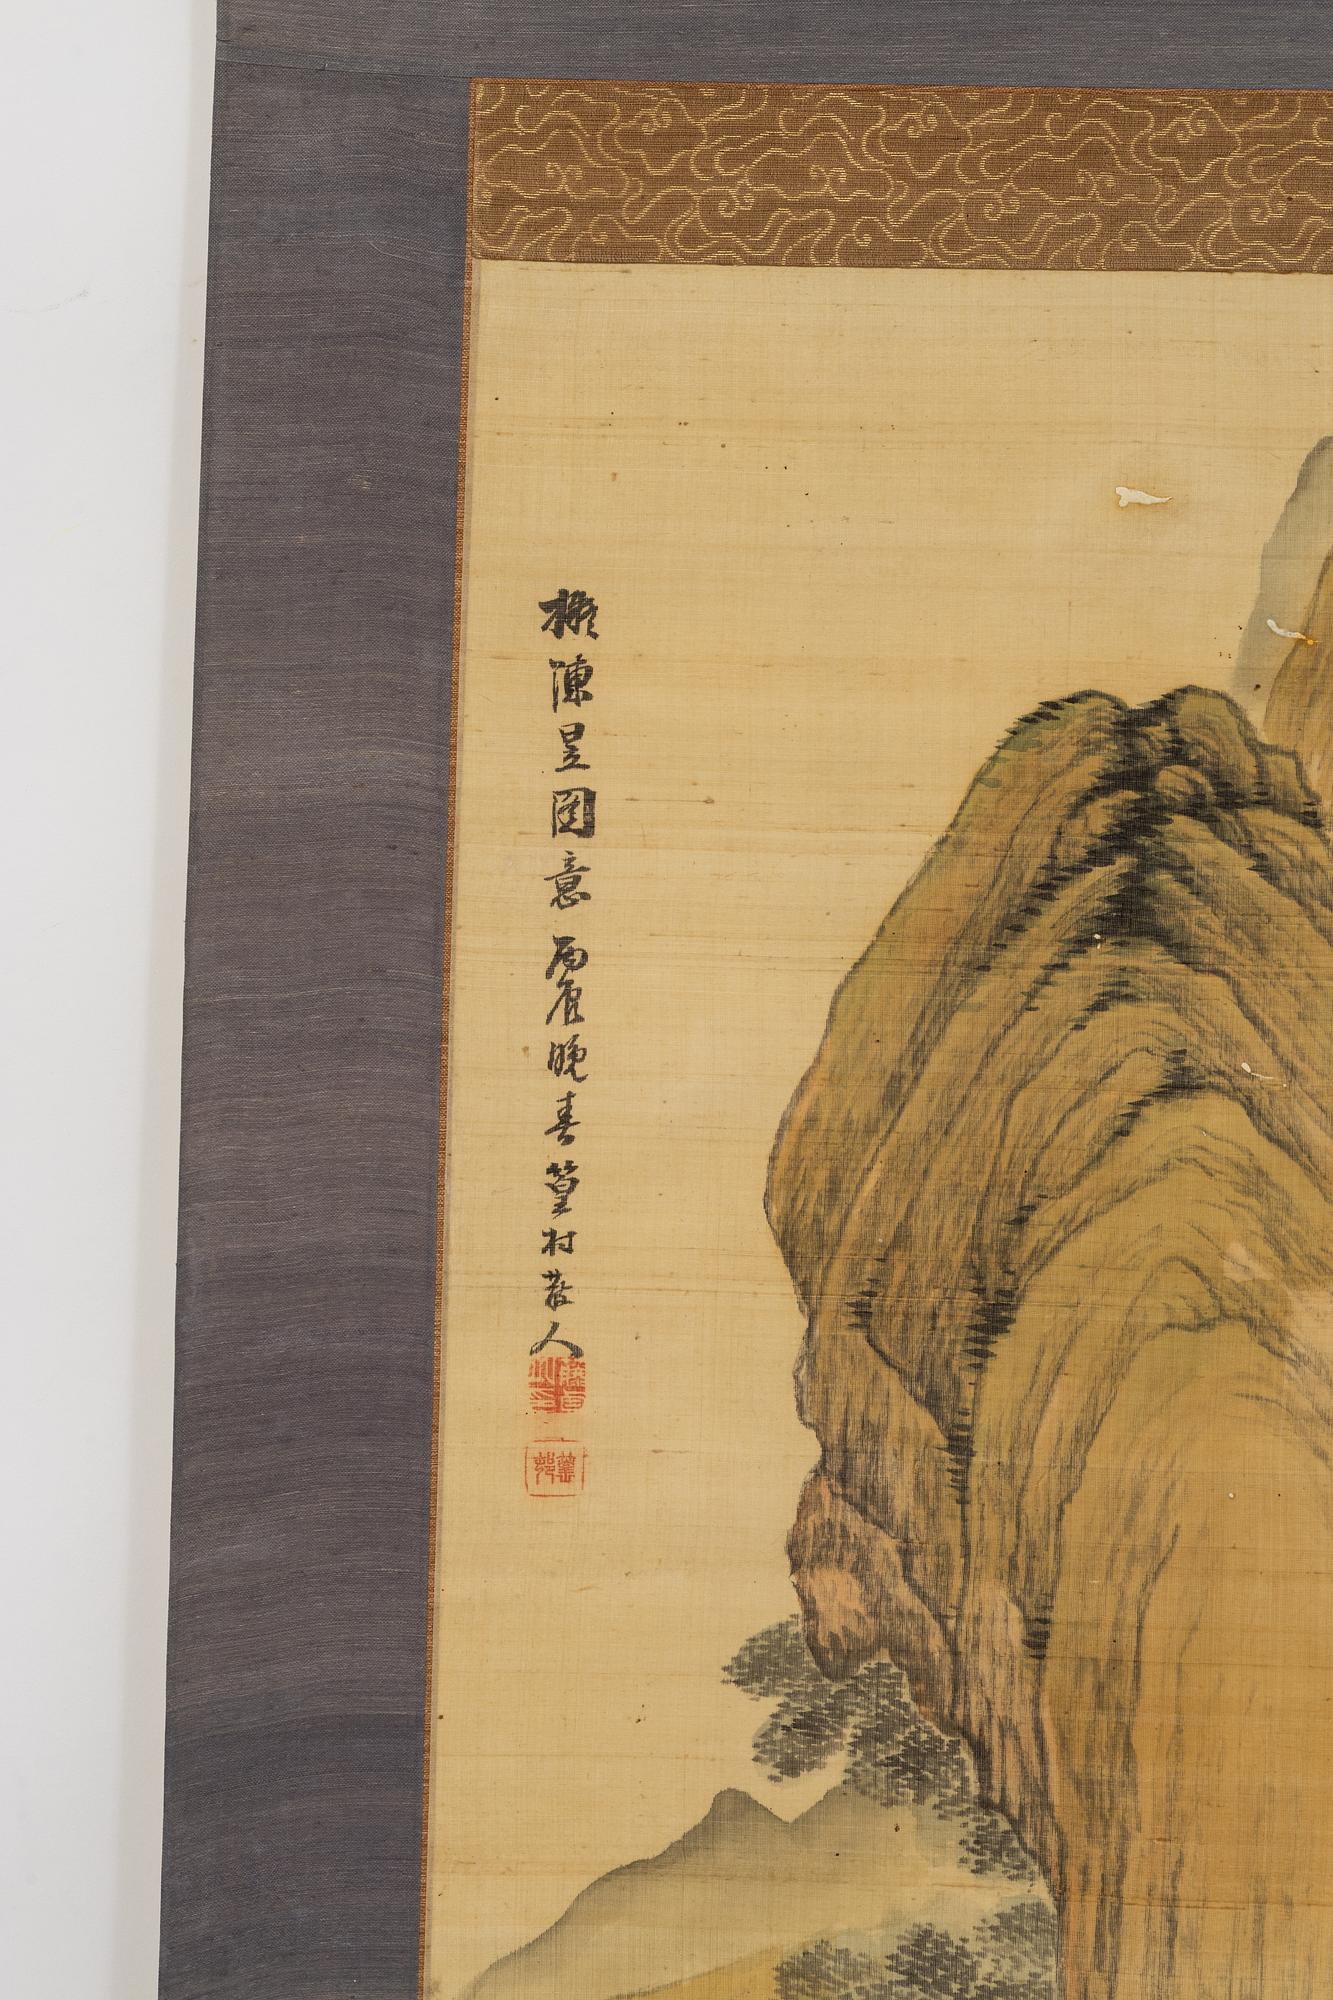 擬陳昱図意丙辰晚春篁村散人